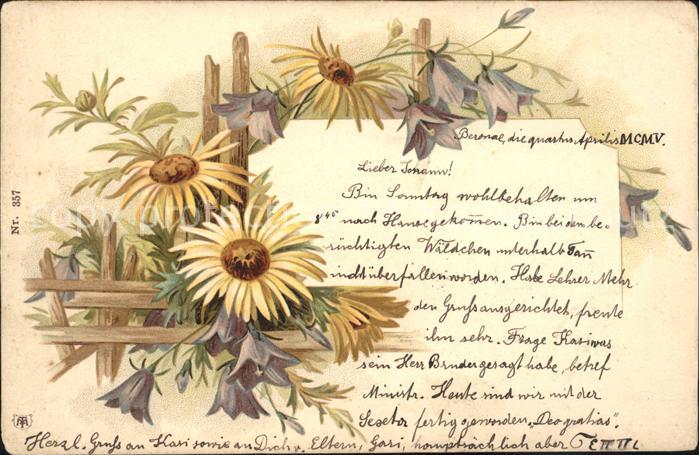 Beronae, die quartus Aprilis MCMV.
Lieber Johann!
Bin Sonntag wohlbehalten um
8 45 nach Hause gekommen. Bin bei dem be-
rüchtigten Wäldchen unterhalb Tan
nicht überfallen worden. Habe Lehrer Mehr
den Gruß ausgerichtet, freute
ihn sehr. Frage Kari was
sein Herr Bruder gesagt habe, betref
Ministr. Heute sind wir mit der
fertig geworden „Deo gratias".
Herzl. Gruß an Kari sowie an Dich u. Eltern, Gari, hauptsächlich aber
Nr. 357